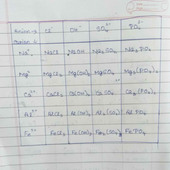 Anion → Cl⁻ OH⁻ SO₄²⁻ PO₄³⁻
Cation ↓
Na⁺ NaCl NaOH Na₂SO₄ Na₃PO₄
Mg²⁺ MgCl₂ Mg(OH)₂ MgSO₄ Mg₃(PO₄)₂
Ca²⁺ CaCl₂ Ca(OH)₂ CaSO₄ Ca₃(PO₄)₂
Al³⁺ AlCl₃ Al(OH)₃ Al₂(SO₄)₃ AlPO₄
FeCl₃ Fe(OH)₃ Fe₂(SO₄)₃ FePO₄